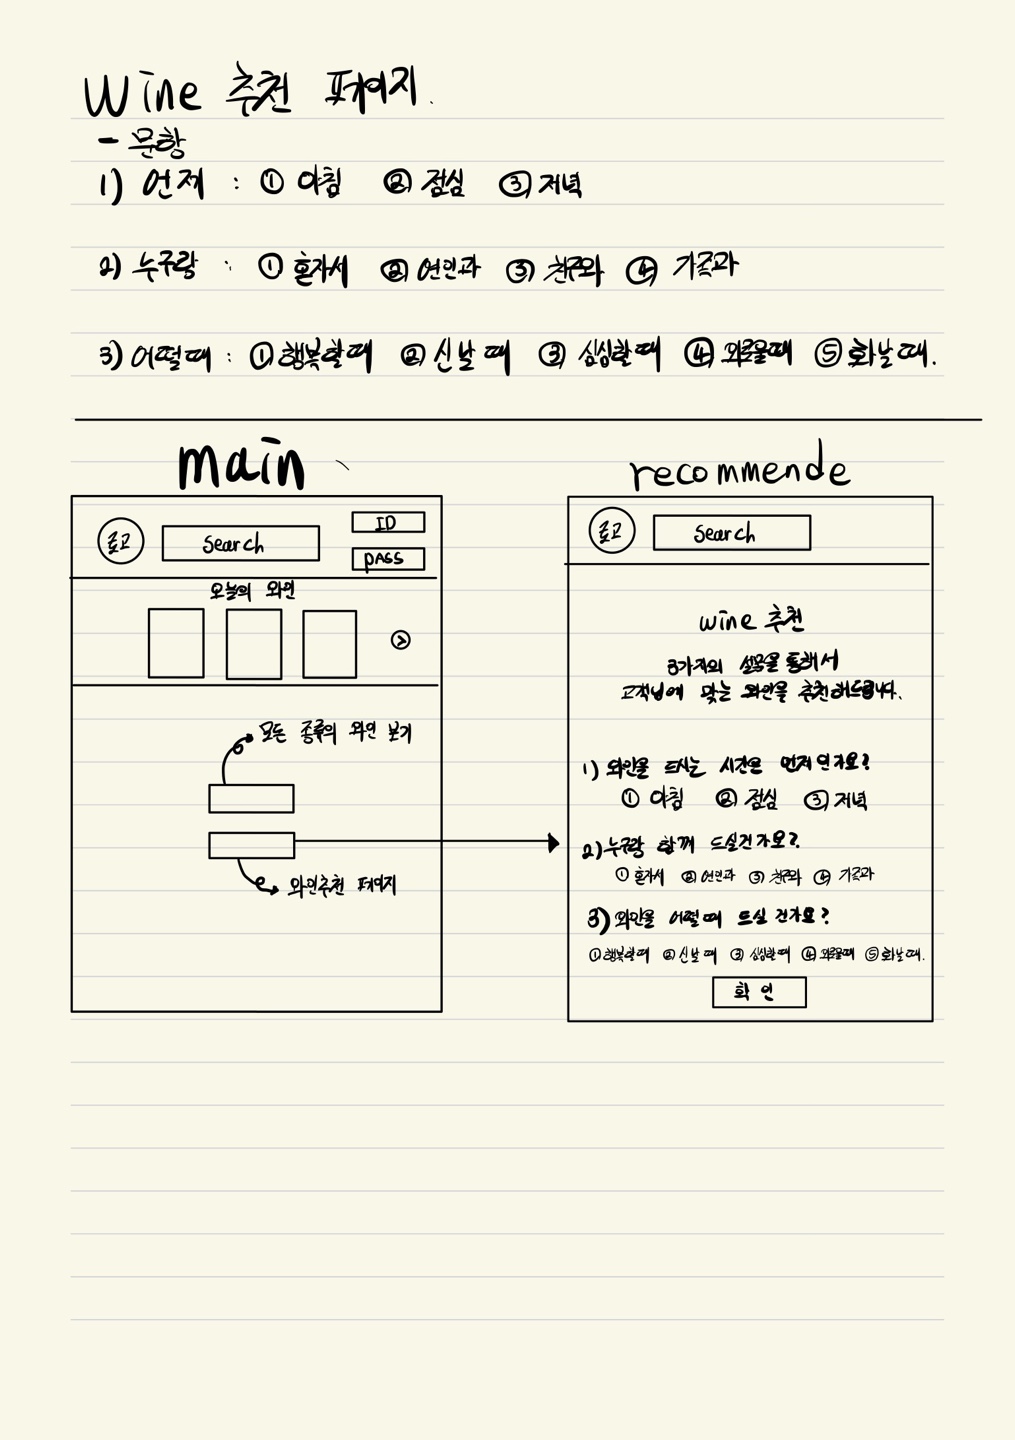 Wine 추천 페이지.
- 문항
1) 언제 : ① 아침 ② 점심 ③ 저녁
2) 누구랑 : ① 혼자서 ② 연인과 ③ 친구와 ④ 가족과
3) 어떨때 : ① 행복할때 ② 신날때 ③ 심심할때 ④ 외로울때 ⑤ 화날때.
main
로고
Search
ID
PASS
오늘의 와인
모든 종류의 와인 보기
와인추천 페이지
recommende
로고
Search
wine 추천
3가지의 설문을 통해서
고객님에 맞는 와인을 추천해드립니다.
1) 와인을 드시는 시간은 언제인가요?
① 아침 ② 점심 ③ 저녁
2) 누구랑 함께 드실건가요?
① 혼자서 ② 연인과 ③ 친구와 ④ 가족과
3) 와인을 어떨때 드실 건가요?
① 행복할때 ② 신날때 ③ 심심할때 ④ 외로울때 ⑤ 화날때.
확인